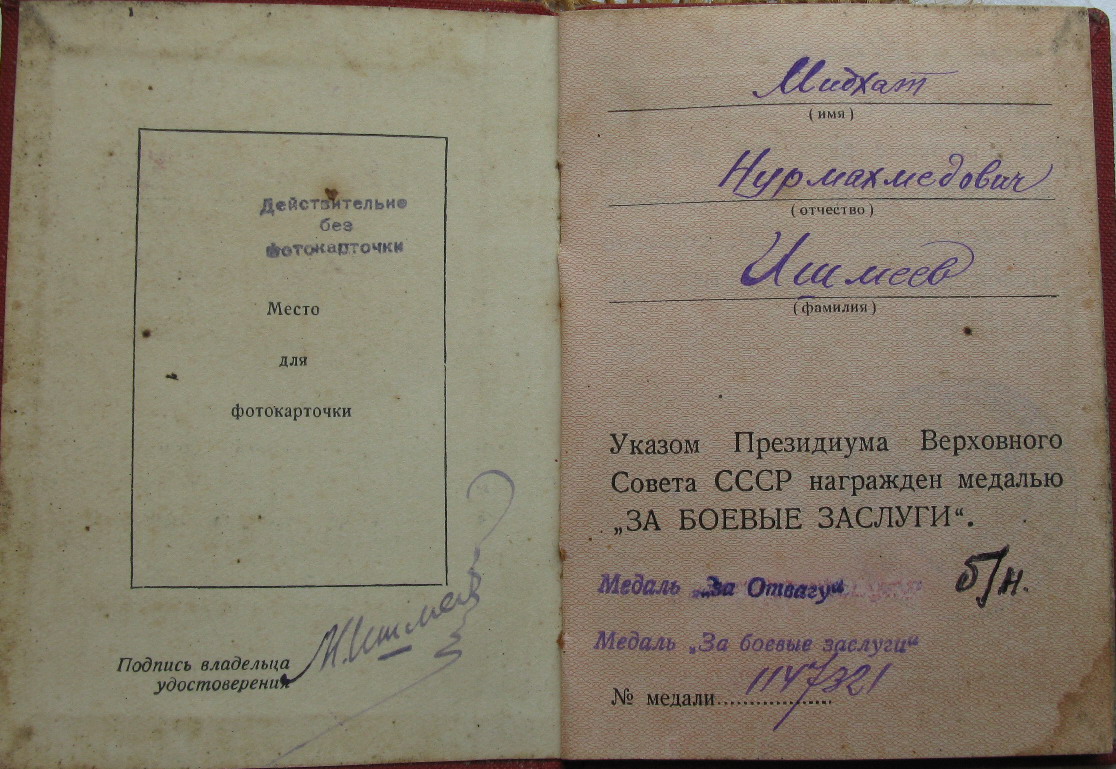 Действительно
без
фотокарточки
Место
для
фотокарточки
Подпись владельца
удостоверения
М.Ишмеев
Мидхат
(имя)
Нурмахмедович
(отчество)
Ишмеев
(фамилия)
Указом Президиума Верховного
Совета СССР награжден медалью
„ЗА БОЕВЫЕ ЗАСЛУГИ“.
Медаль „За Отвагу“ б/н.
Медаль „За боевые заслуги“
№ медали 1147321